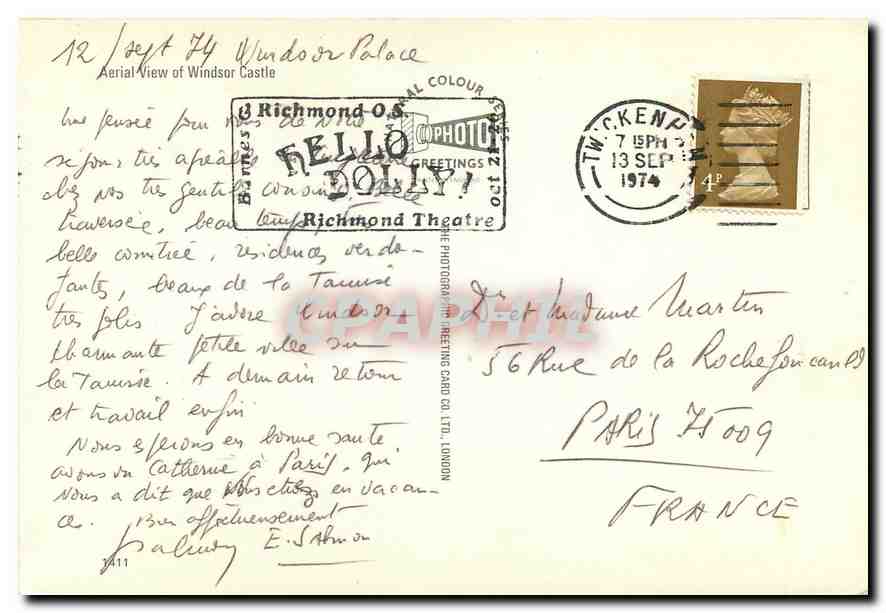 12/sept 74 Windsor Palace
Aerial View of Windsor Castle
Une pensée pour vous de notre
séjour très agréable
chez nos très gentils cousins. Belle
traversée, beau temps,
belle contrée, résidences verdo-
yantes, beaux de la Tamise
très jolis J'adore Windsor
charmante petite ville sur
la Tamise. A demain retour
et travail enfin
Nous espérons en bonne santé
avons vu Catherine à Paris, qui
nous a dit que vous étiez en vacan-
ces. Bien affectueusement
E. Salmon
1411
Barnes &
Richmond O.S.
HELLO
DOLLY!
Richmond Theatre
oct 21-26
NATURAL COLOUR SERIES
PHOTO
GREETINGS
THE PHOTOGRAPHIC GREETING CARD CO. LTD., LONDON
TWICKENHAM
7 15 PM
13 SEP
1974
4P
Dr et Madame Martin
56 Rue de la Rochefoucauld
PARIS 75009
FRANCE
CPAPHIL